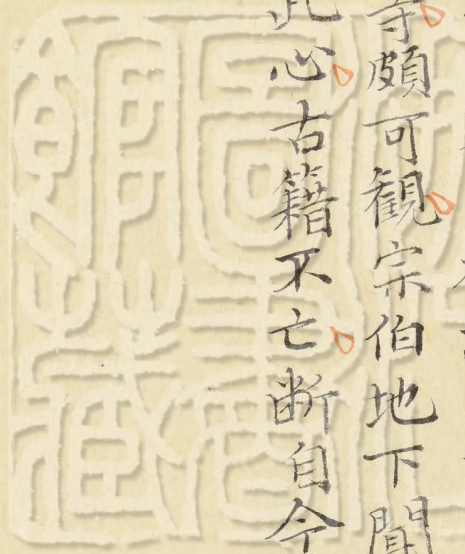 寺頗可観宗伯地下聞
此心古籍不亡断自今